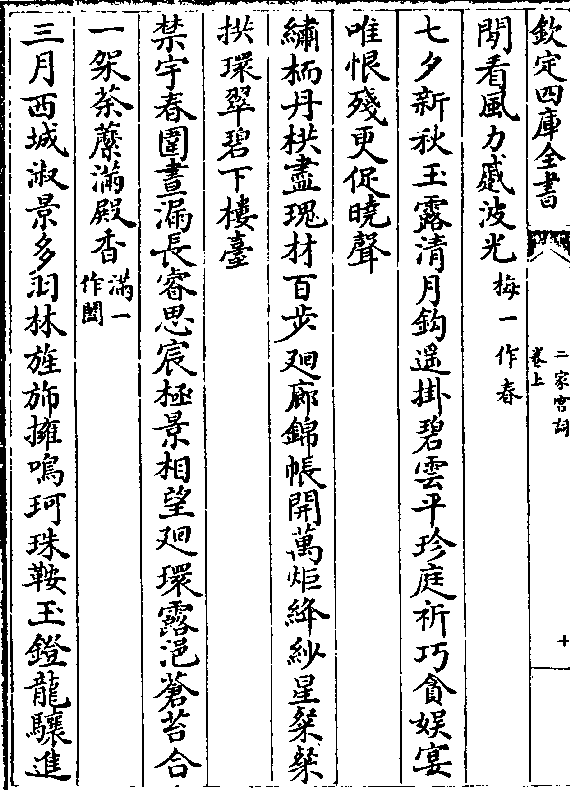 欽定四庫全書
二家宮詞
卷上
十
閒看風力蹙波光梅一作春
七夕新秋玉露清月鈎遥掛碧雲平珍庭祈巧貪娱宴
唯恨殘更促曉聲
繡栭丹栱盡瑰材百步廻廊錦帳開萬炬絳紗星粲粲
拱環翠碧下樓臺
禁宇春圍晝漏長睿思宸極景相望廻環露浥蒼苔合
一架荼䕷滿殿香滿一作闔
三月西城淑景多羽林旌斾擁鳴珂珠鞍玉鐙龍驤進